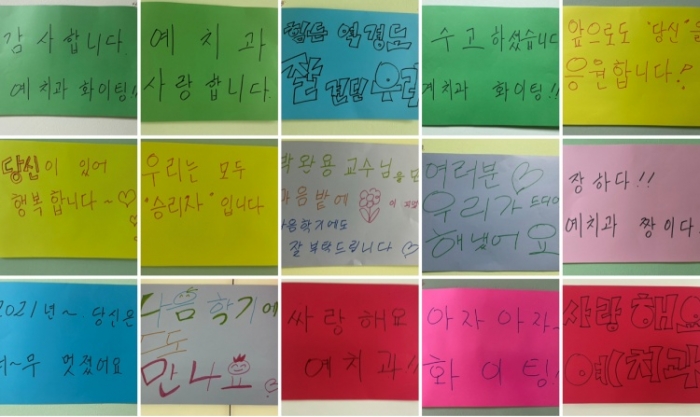 감사합니다
예치과 화이팅!!
예치과
사랑합니다.
힘든 역경도
잘 견딘 우리
수고하셨습니다
예치과 화이팅!!
앞으로도 "당신"을
응원합니다!
당신이 있어
행복합니다~♡
우리는 모두
"승리자"입니다
박완용 교수님을
마음밭에
다음학기에도
잘 부탁드립니다 ♡
여러분♡
우리가 드디어
해냈어요
장하다!!
예치과 짱이다.
2021년~ 당신은
너~무 멋졌어요
다음 학기에
또
만나요
싸랑해요
예치과!!
아자 아자~
화이팅!
사랑해요
예(치과